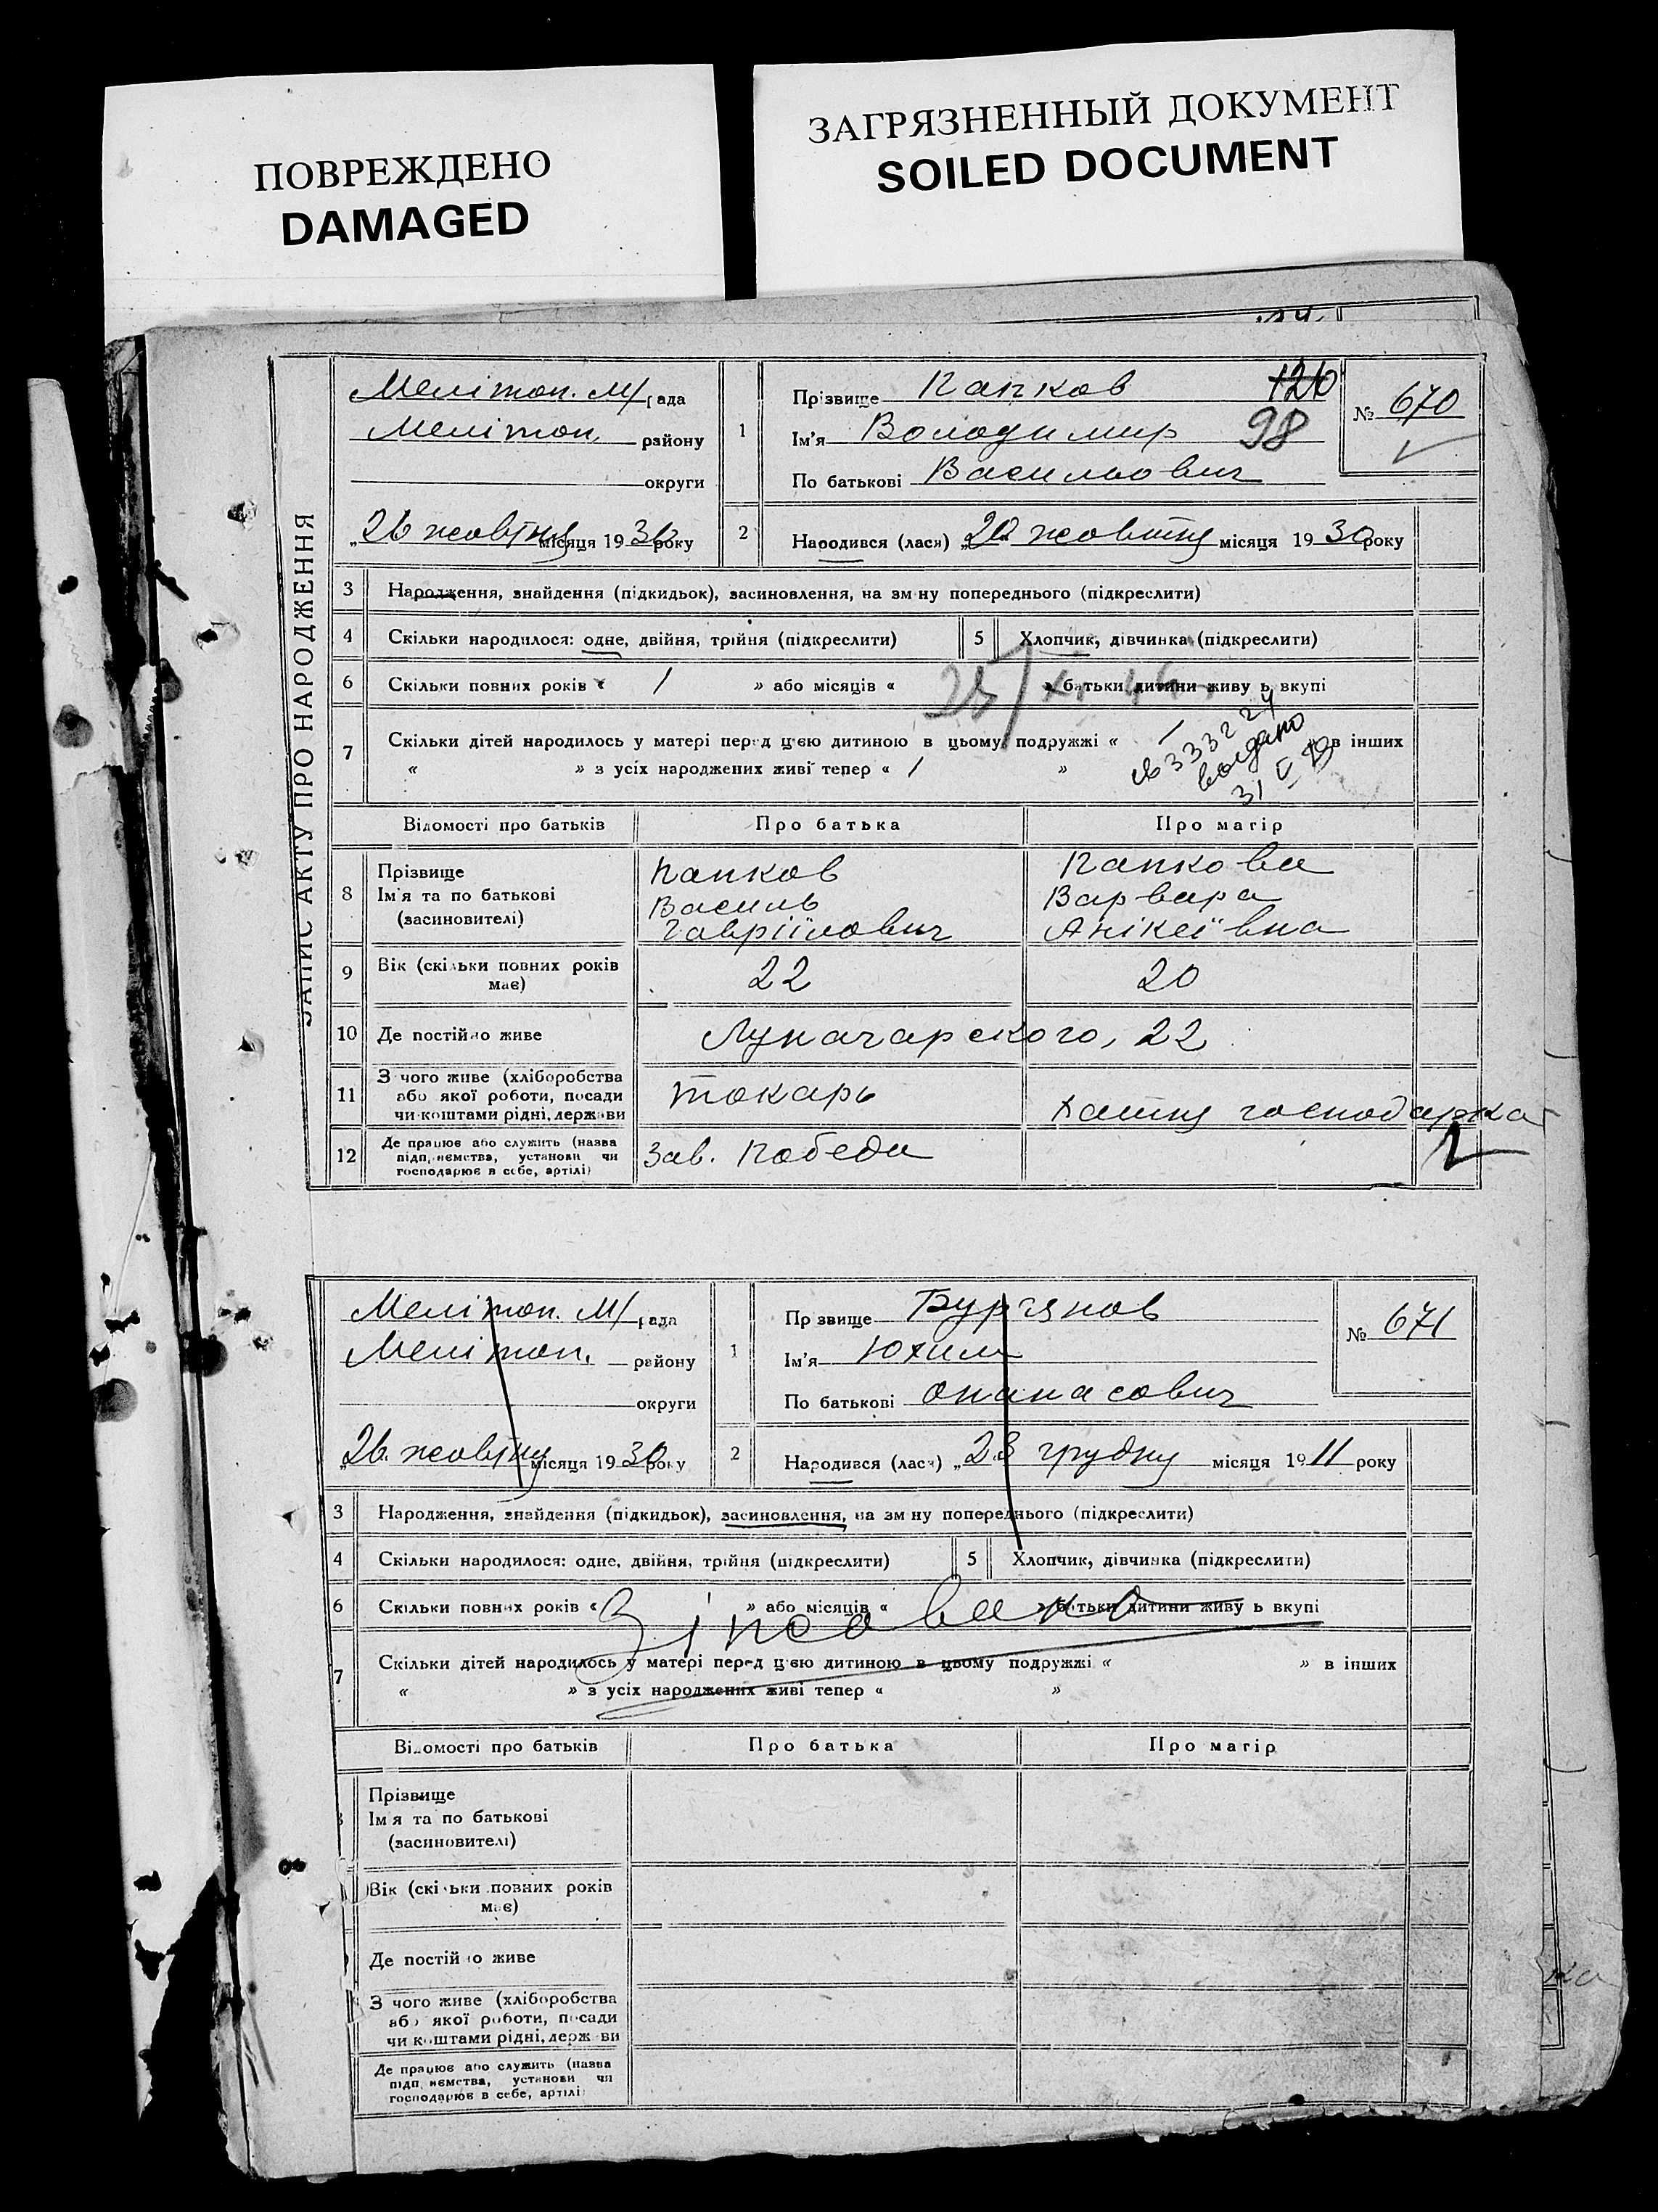 ПОВРЕЖДЕНО
DAMAGED
ЗАГРЯЗНЕННЫЙ ДОКУМЕНТ
SOILED DOCUMENT
ЗАПИС АКТУ ПРО НАРОДЖЕННЯ
Мелітоп. М/рада
Мелітоп. району
округи
„26 жовтня місяця 1930 року
1
Прізвище Папков 120
Ім'я Володимир 98
По батькові Васильович
№ 670
2
Народився (лася) „20 жовтня місяця 1930 року
3 Народження, знайдення (підкидьок), засиновлення, на зміну попереднього (підкреслити)
4 Скільки народилося: одне, двійня, трійня (підкреслити) 5 Хлопчик, дівчинка (підкреслити)
6 Скільки повних років « 1 » або місяців « » батьки дитини живуть вкупі
7 Скільки дітей народилось у матері перед цією дитиною в цьому подружжі « — » в інших
« » з усіх народжених живі тепер « 1 »
Відомості про батьків Про батька Про матір
8 Прізвище Ім'я та по батькові (засиновителі)
Папков Василь Гавріїлович
Папкова Варвара Анікеївна
9 Вік (скільки повних років має) 22 20
10 Де постійно живе Луначарского, 22
11 З чого живе (хліборобства або якої роботи, посади чи коштами рідні, держави
токарь
хатня господарка
12 Де працює або служить (назва підприємства, установи чи господарює в себе, артілі)
Зав. Победа
Мелітоп. М/рада
Мелітоп. району
округи
„26 жовтня місяця 1930 року
1
Прізвище Бур'янов
Ім'я Юхим
По батькові Опанасович
№ 671
2
Народився (лася) „23 грудня місяця 1911 року
3 Народження, знайдення (підкидьок), засиновлення, на зміну попереднього (підкреслити)
4 Скільки народилося: одне, двійня, трійня (підкреслити) 5 Хлопчик, дівчинка (підкреслити)
6 Скільки повних років « » або місяців « » батьки дитини живуть вкупі
Зіпсовано
7 Скільки дітей народилось у матері перед цією дитиною в цьому подружжі « » в інших
« » з усіх народжених живі тепер « »
Відомості про батьків Про батька Про матір
Прізвище
Ім'я та по батькові
(засиновителі)
Вік (скільки повних років
має)
Де постійно живе
З чого живе (хліборобства
або якої роботи, посади
чи коштами рідні, держави
Де працює або служить (назва
підприємства, установи чи
господарює в себе, артілі)